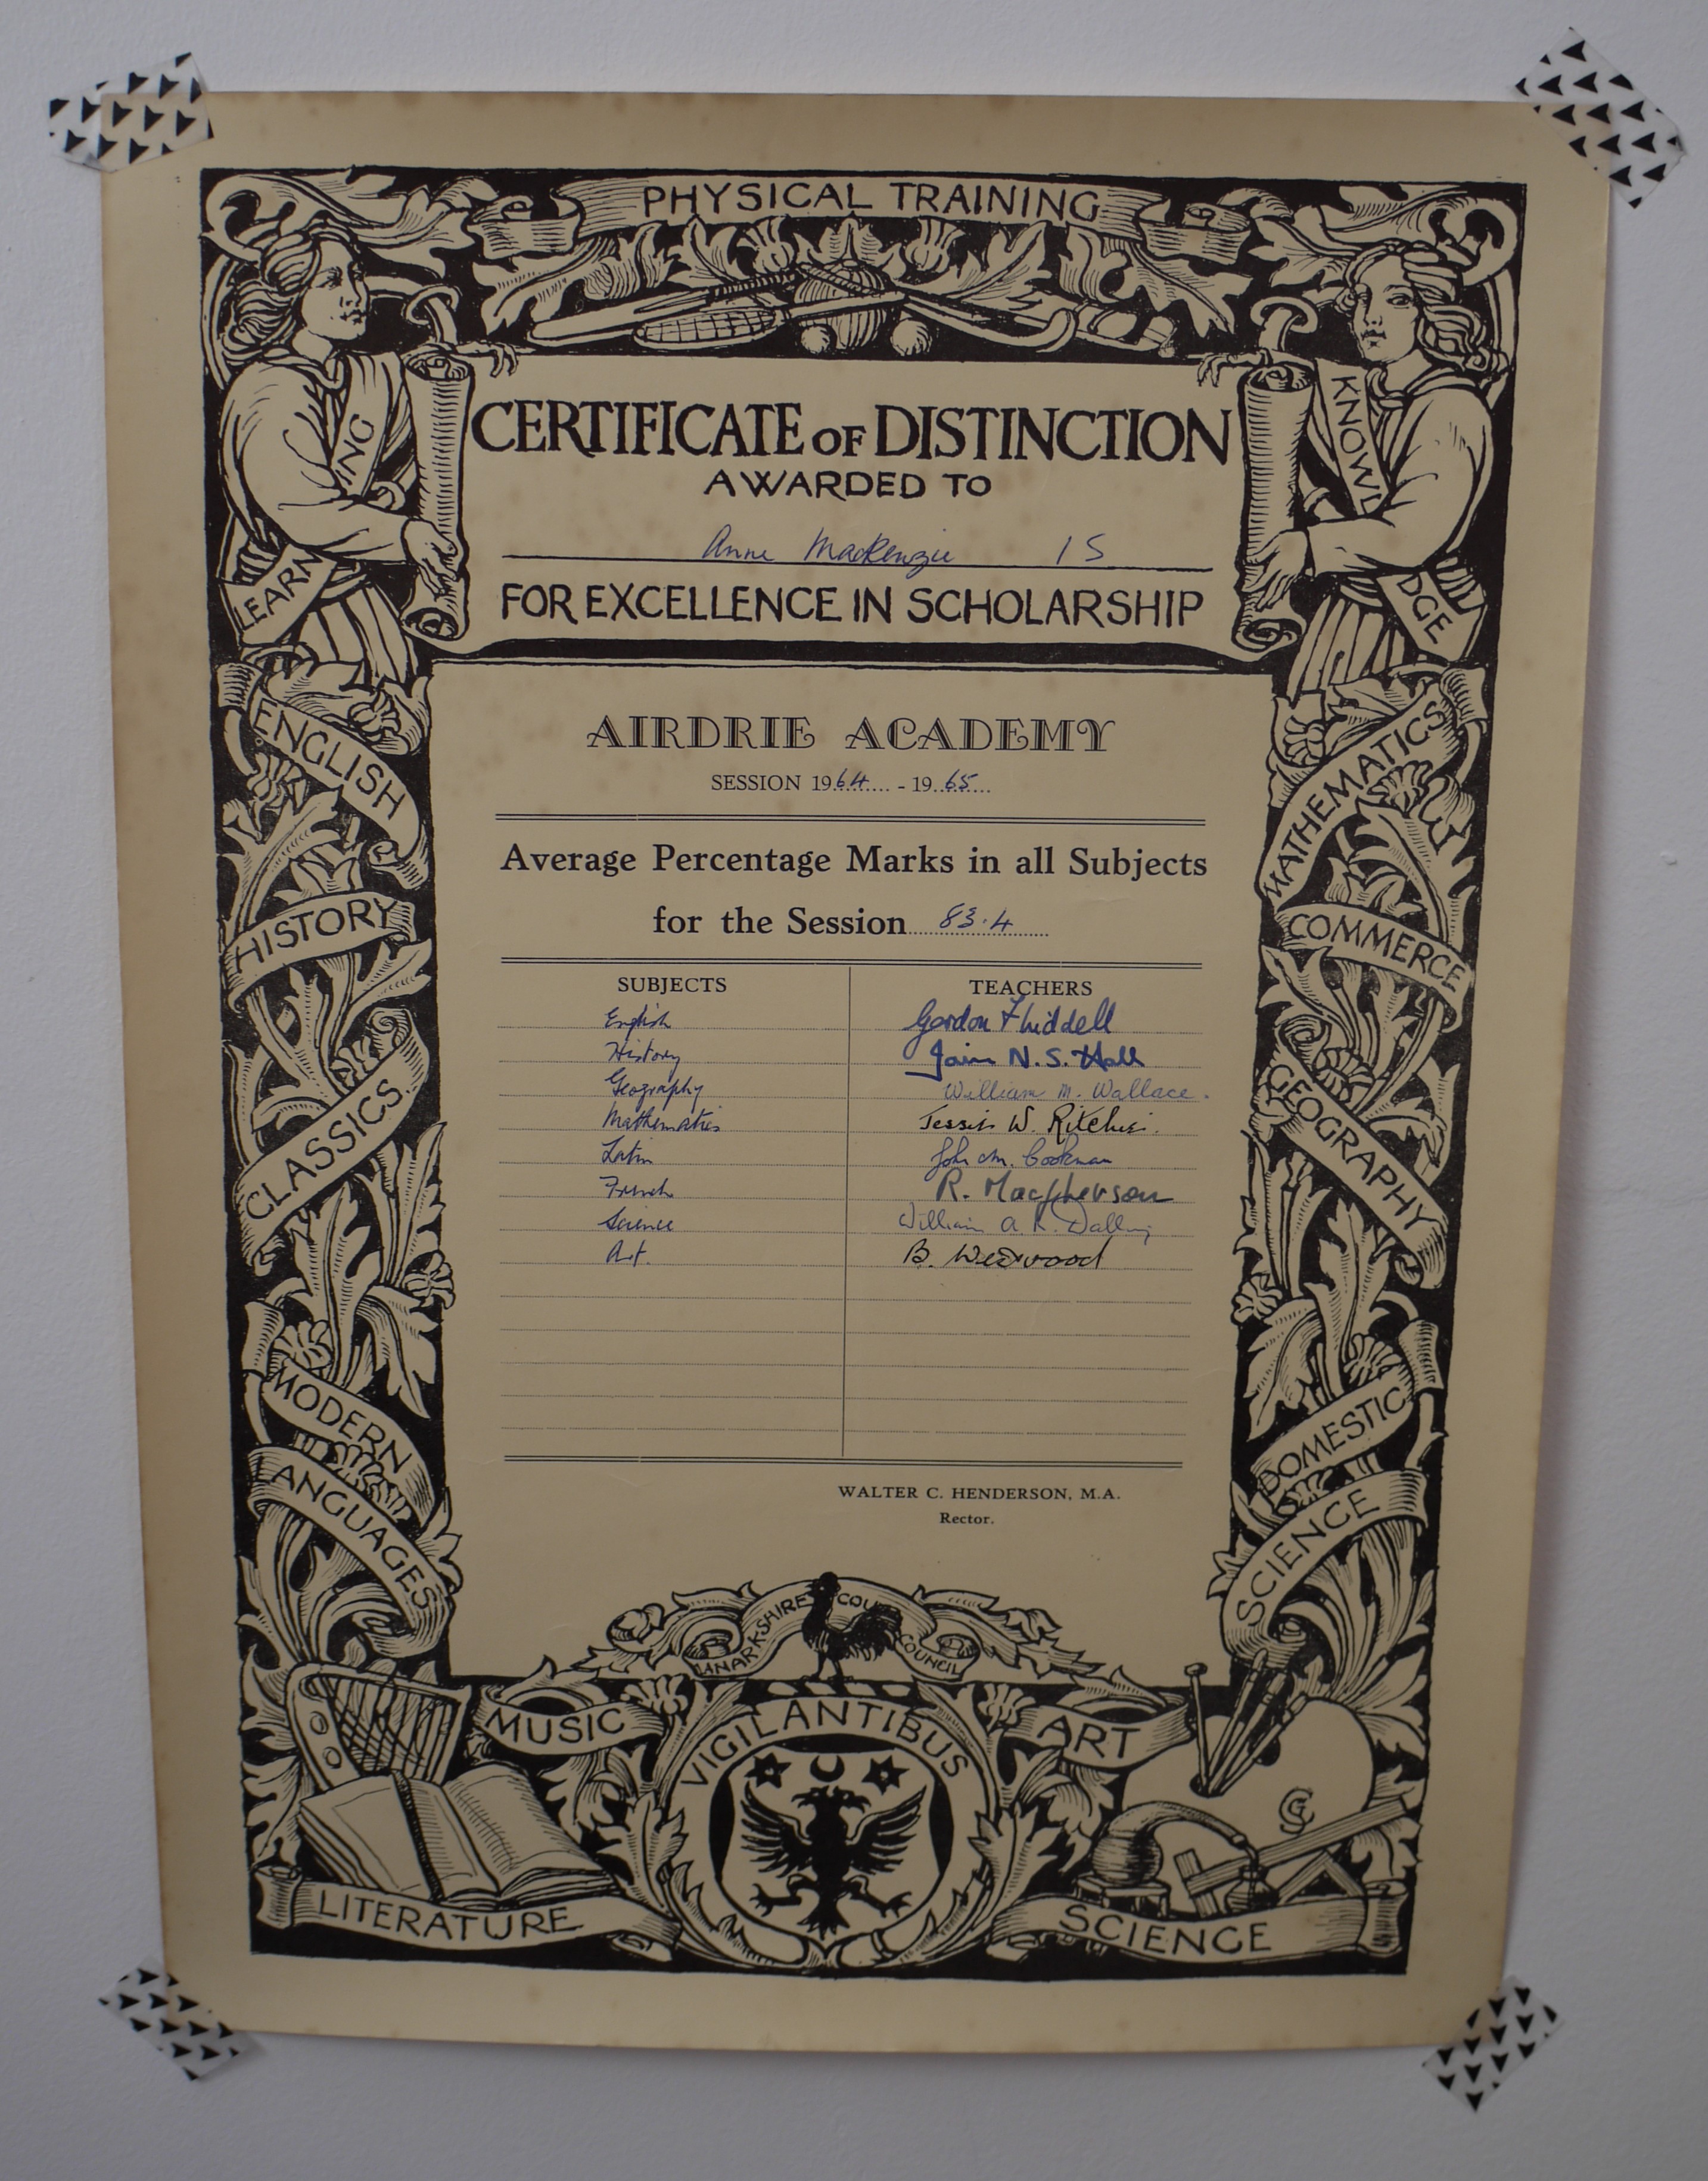 PHYSICAL TRAINING
CERTIFICATE OF DISTINCTION
AWARDED TO
Anne MacKenzie 1S
FOR EXCELLENCE IN SCHOLARSHIP
LEARN
ING
KNOWL
DGE
AIRDRIE ACADEMY
SESSION 1964 - 1965
Average Percentage Marks in all Subjects
for the Session 83.4
SUBJECTS TEACHERS
English Gordon
History Iain N. S. Hall
Geography William M. Wallace.
Mathematics Jessie W. Ritchie.
Latin John M. Cookman
French R. Macpherson
Science William A. K.
Art. B. Weirwood
WALTER C. HENDERSON, M.A.
Rector.
ENGLISH
HISTORY
CLASSICS
MODERN
LANGUAGES
MATHEMATICS
COMMERCE
GEOGRAPHY
DOMESTIC
SCIENCE
LANARKSHIRE COU COUNCIL
MUSIC
VIGILANTIBUS
ART
LITERATURE
SCIENCE